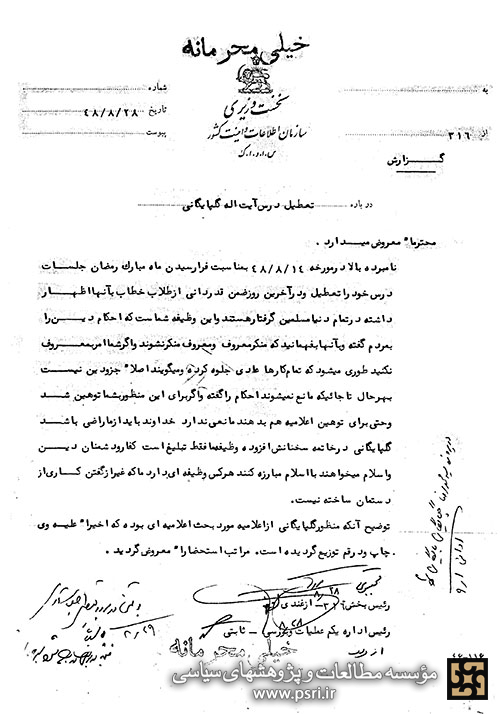 خیلی محرمانه
نخست وزیری
سازمان اطلاعات و امنیت کشور
س.ا.و.ا.ک
به
شماره
از ۳۱۶
تاریخ ۴۸/۸/۲۸
پیوست
گزارش
درباره تعطیل درس آیت اله گلپایگانی
محترما" معروض میدارد .
نامبرده بالا در مورخه ۴۸/۸/۱۴ بمناسبت فرارسیدن ماه مبارک رمضان جلسات
درس خود را تعطیل ودر آخرین روز ضمن قدردانی از طلاب خطاب بآنها اظهار
داشته در تمام دنیا مسلمین گرفتار هستند واین وظیفه شماست که احکام دین را
بمردم گفته وبآنها بفهمانید که منکر معروف ومعروف منکر نشوند واگر شما امر بمعروف
نکنید طوری میشود که تمام کارها عادی جلوه کرده ومیگویند اصلا" جزو دین نیست
بهرحال تا جائیکه مانع نمیشوند احکام را گفته واگر برای این منظور بشما توهین شد
وحتی برای توهین اعلامیه هم بدهند مانعی ندارد خداوند باید از ما راضی باشد
گلپایگانی در خاتمه سخنانش افزوده وظیفه ما فقط تبلیغ است کفار ودشمنان دین
واسلام میخواهند با اسلام مبارزه کنند هرکس وظیفه ای دارد ما که غیر از گفتن کاری از
دستمان ساخته نیست.
توضیح آنکه منظور گلپایگانی از اعلامیه مورد بحث اعلامیه ای بوده که اخیرا" علیه وی
چاپ ودر قم توزیع گردیده است. مراتب استحضارا" معروض گردید .
رئیس بخش ۳۱۶ – ازغندی
رئیس اداره یکم عملیات وبررسی – ثابتی
خیلی محرمانه
مؤسسه مطالعات و پژوهشهای سیاسی
www.psri.ir